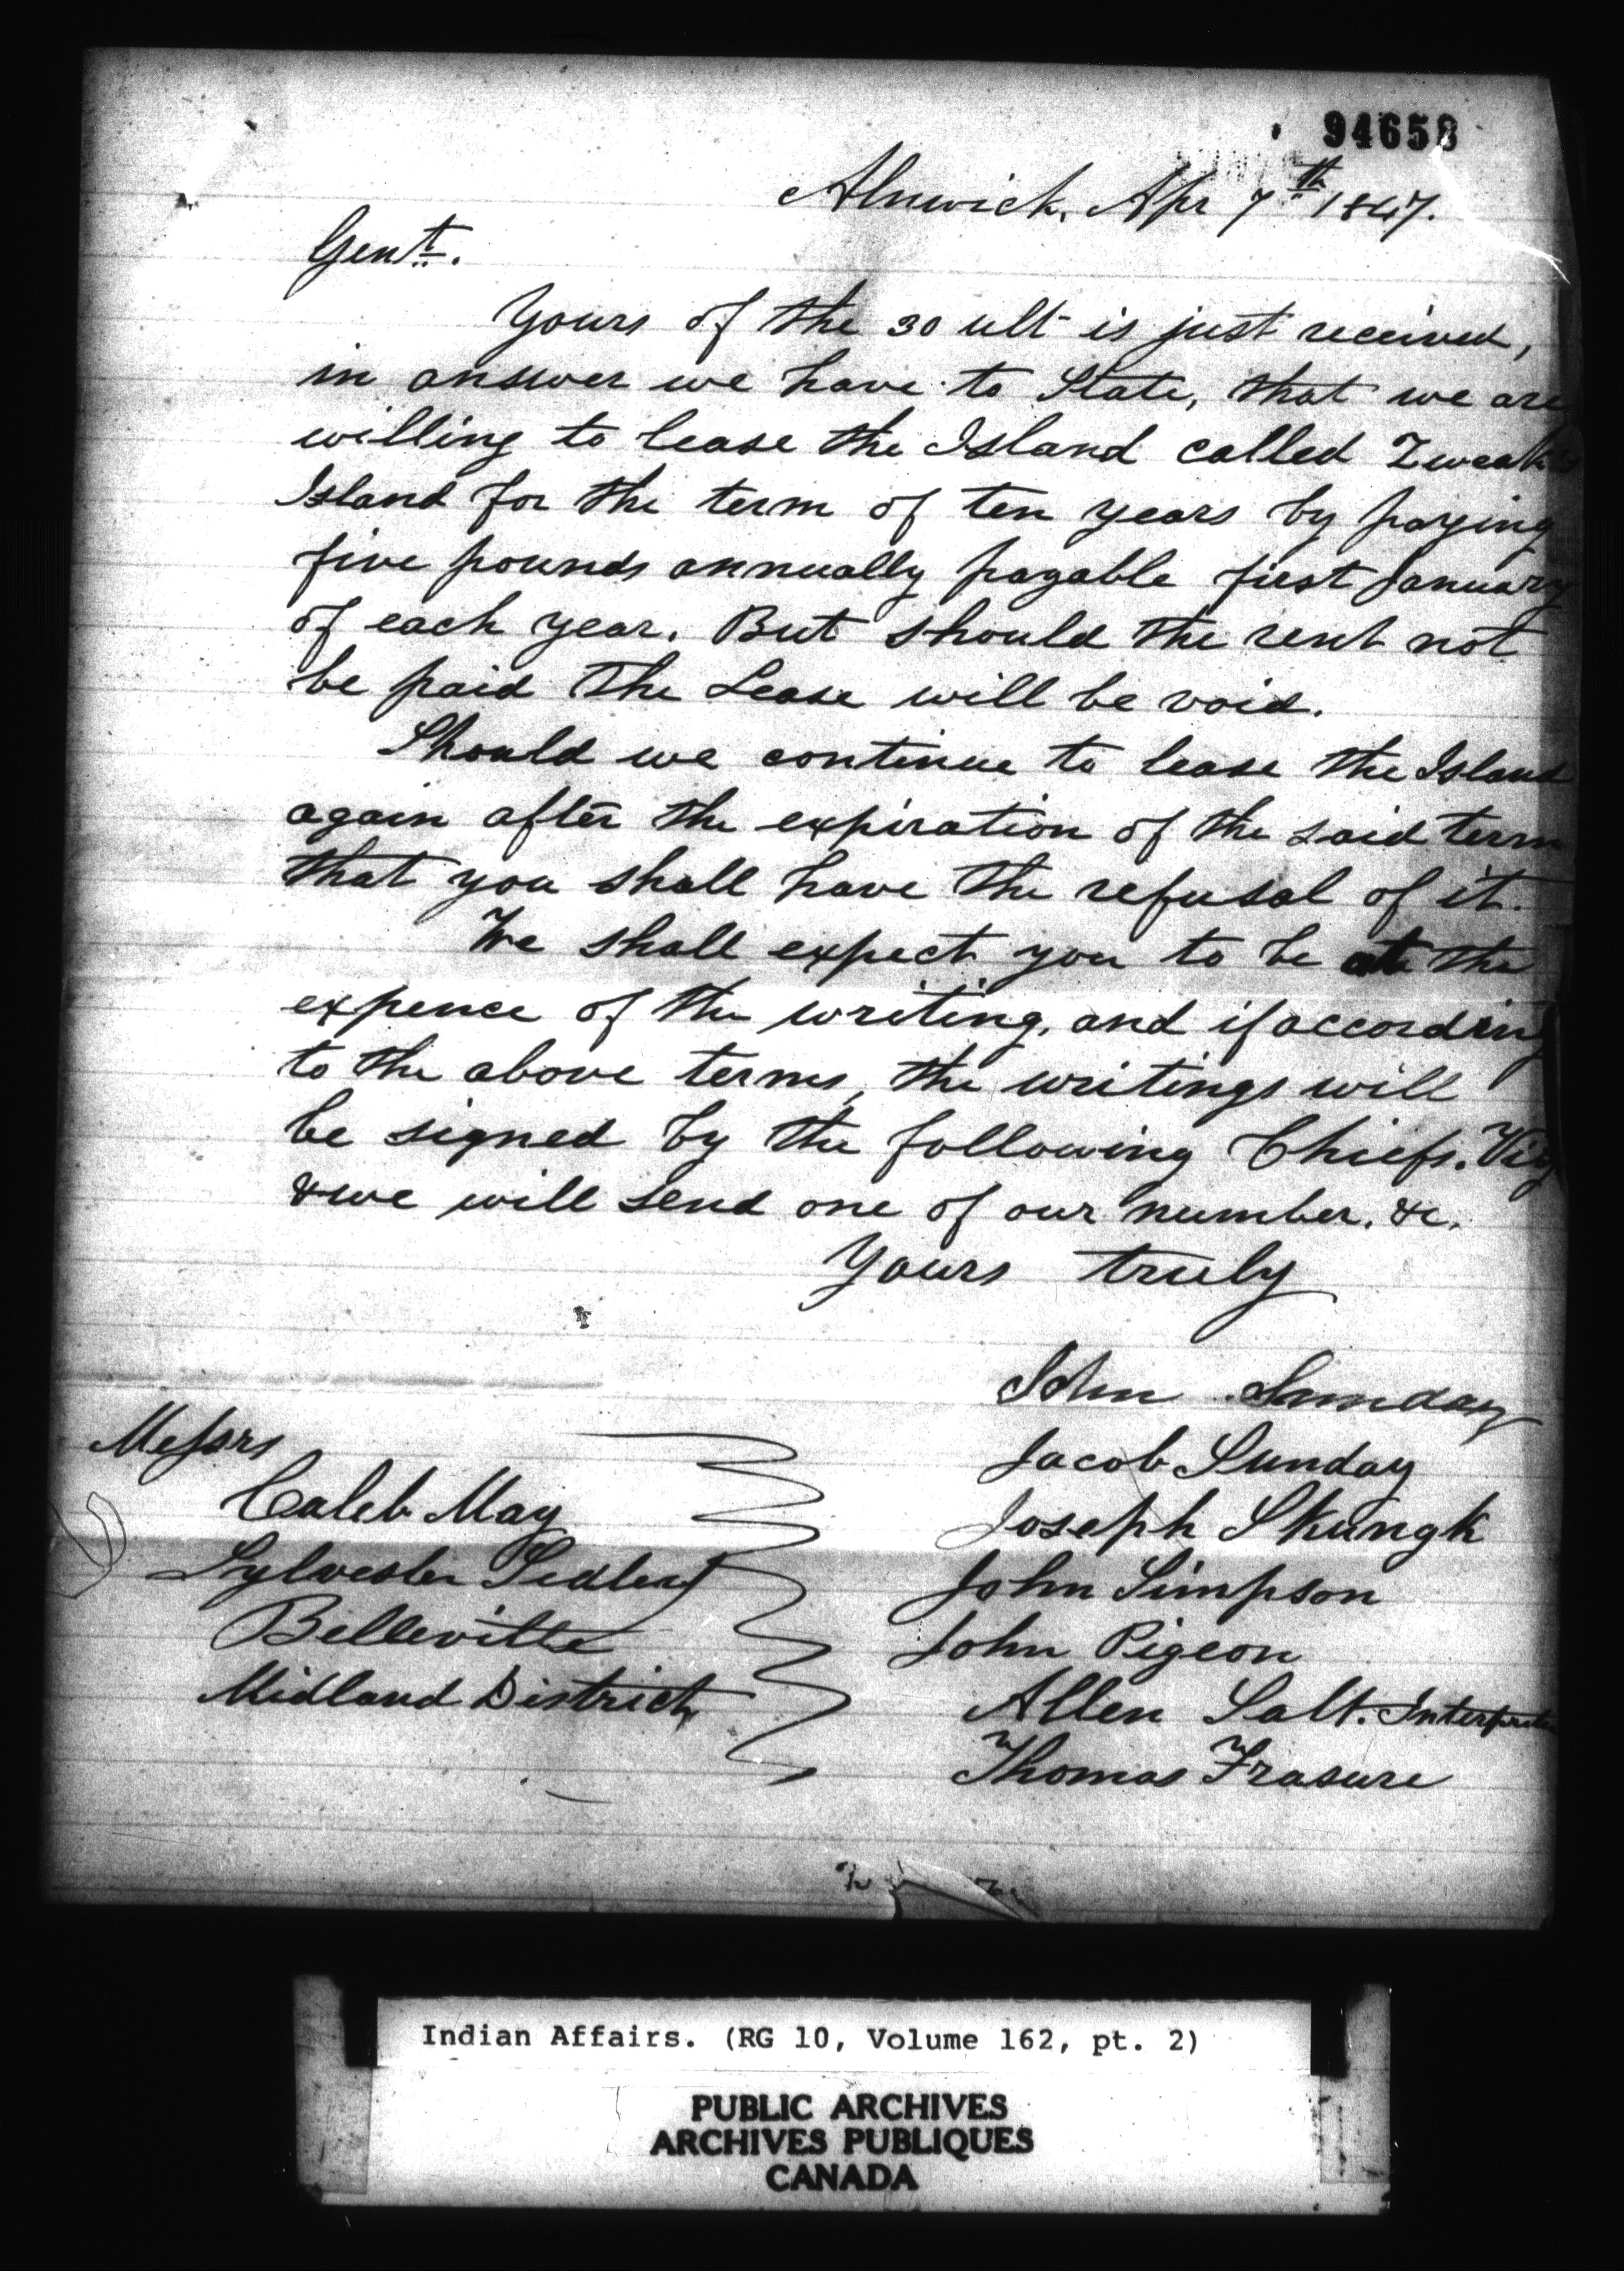 94658
Alnwick, Apr 7th 1847.
Gent.
Yours of the 30 ult is just received,
in answer we have to State, that we are
willing to lease the Island called
Island for the term of ten years by paying
five pounds annually payable first January
of each year. But should the rent not
be paid the Lease will be void.
Should we continue to lease the Island
again after the expiration of the said term
that you shall have the refusal of it.
We shall expect you to be at the
expence of the writing, and if according
to the above terms, the writings will
be signed by the following Chiefs. Viz
& we will send one of our number. &c.
Yours truly
John Sunday
Messrs
Jacob Sunday
Caleb May
Joseph Skungk
Sylvester
John Simpson
Belleville
John Pigeon
Midland District
Allen Salt. Interpreter
Thomas Frasure
Indian Affairs. (RG 10, Volume 162, pt. 2)
PUBLIC ARCHIVES
ARCHIVES PUBLIQUES
CANADA